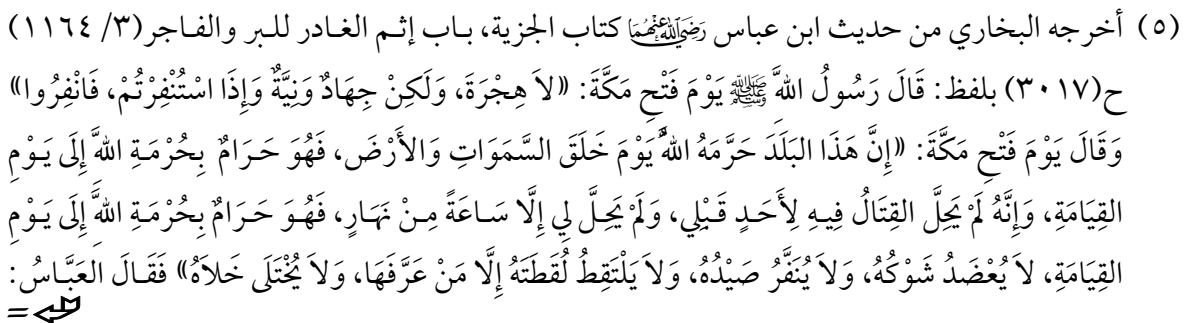 (٥) أخرجه البخاري من حديث ابن عباس رَضِيَ اللَّهُ عَنْهُمَا كتاب الجزية، بـاب إثـم الغـادر للـبر والفـاجر (٣/ ١١٦٤)
ح(٣٠١٧) بلفظ: قَالَ رَسُولُ اللهَّ ﷺ يَوْمَ فَتْحِ مَكَّةَ: «لاَ هِجْرَةَ، وَلَكِنْ جِهَادٌ وَنِيَّةٌ وَإِذَا اسْتُنْفِرْتُمْ، فَانْفِرُوا»
وَقَالَ يَوْمَ فَتْحِ مَكَّةَ: «إِنَّ هَذَا البَلَدَ حَرَّمَهُ اللهَُّ يَوْمَ خَلَقَ السَّمَوَاتِ وَالأَرْضَ، فَهُوَ حَـرَامٌ بِحُرْمَـةِ اللهَِّ إِلَى يَـوْمِ
القِيَامَةِ، وَإِنَّهُ لَمْ يَحِلَّ القِتَالُ فِيـهِ لِأَحَـدٍ قَـبْلِي، وَلَمْ يَحِـلَّ لِي إِلَّا سَـاعَةً مِـنْ نَهَـارٍ، فَهُـوَ حَـرَامٌ بِحُرْمَـةِ اللهَِّ إِلَى يَـوْمِ
القِيَامَةِ، لاَ يُعْضَدُ شَوْكُهُ، وَلاَ يُنَفَّرُ صَيْدُهُ، وَلاَ يَلْتَقِطُ لُقَطَتَهُ إِلَّا مَنْ عَرَّفَهَا، وَلاَ يُخْتَلَى خَلاَهُ» فَقَـالَ العَبَّـاسُ:
=